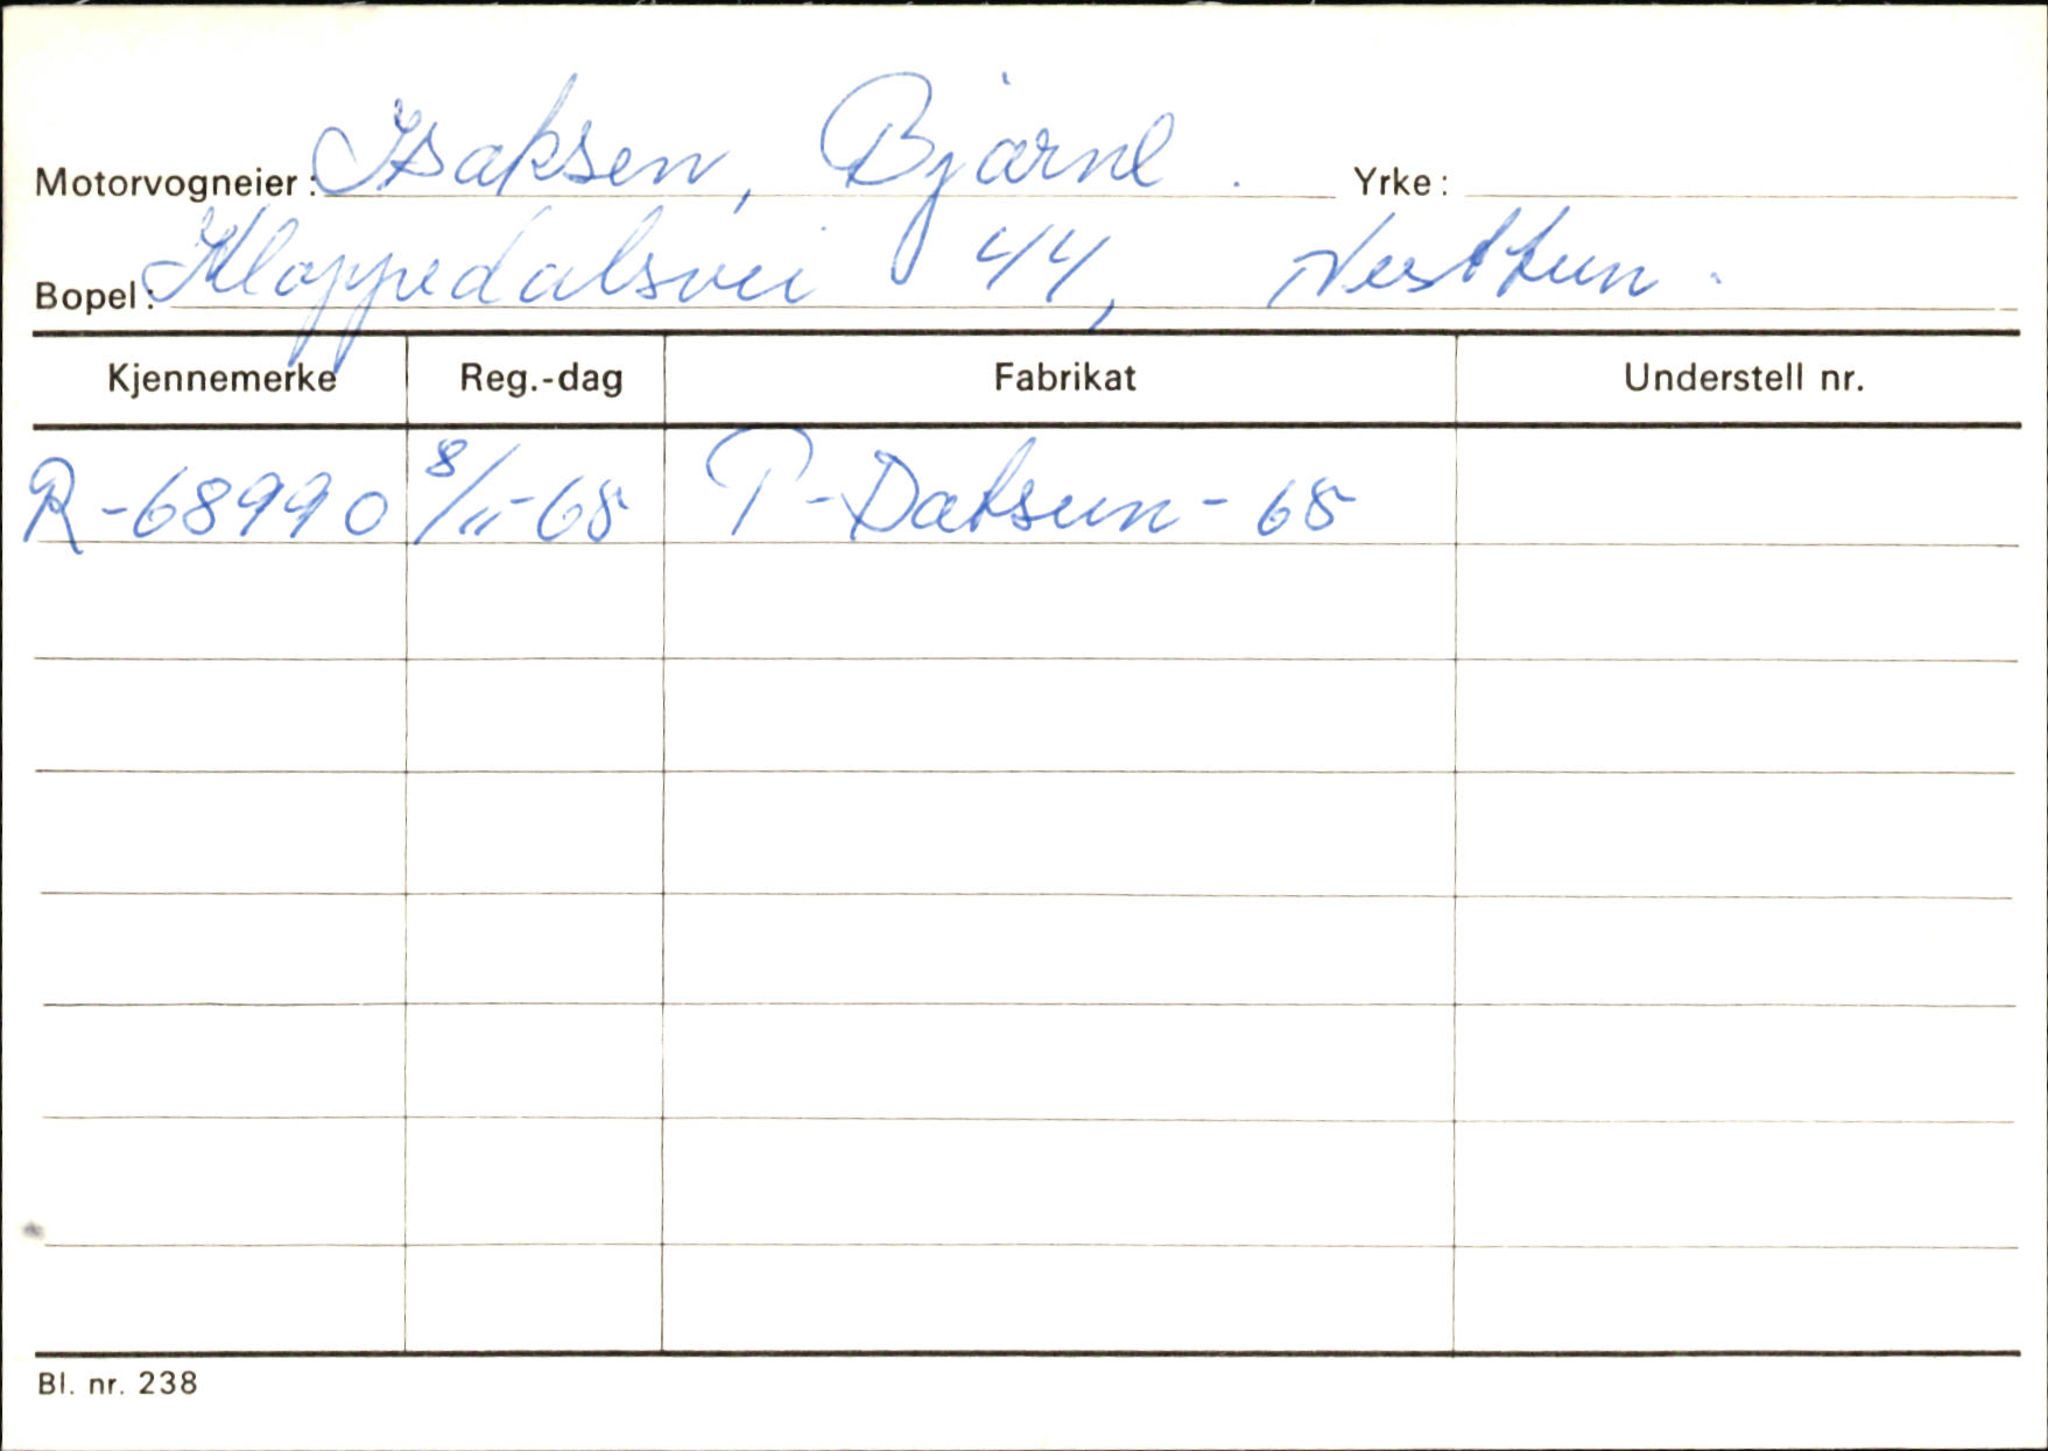 Motorvogneier: Isaksen, Bjarne. Yrke:
Bopel: Kloppedalsvei 44, Nesttun.
Kjennemerke Reg.-dag Fabrikat Understell nr.
R-68990 8/11-68 P-Datsun-68
Bl. nr. 238